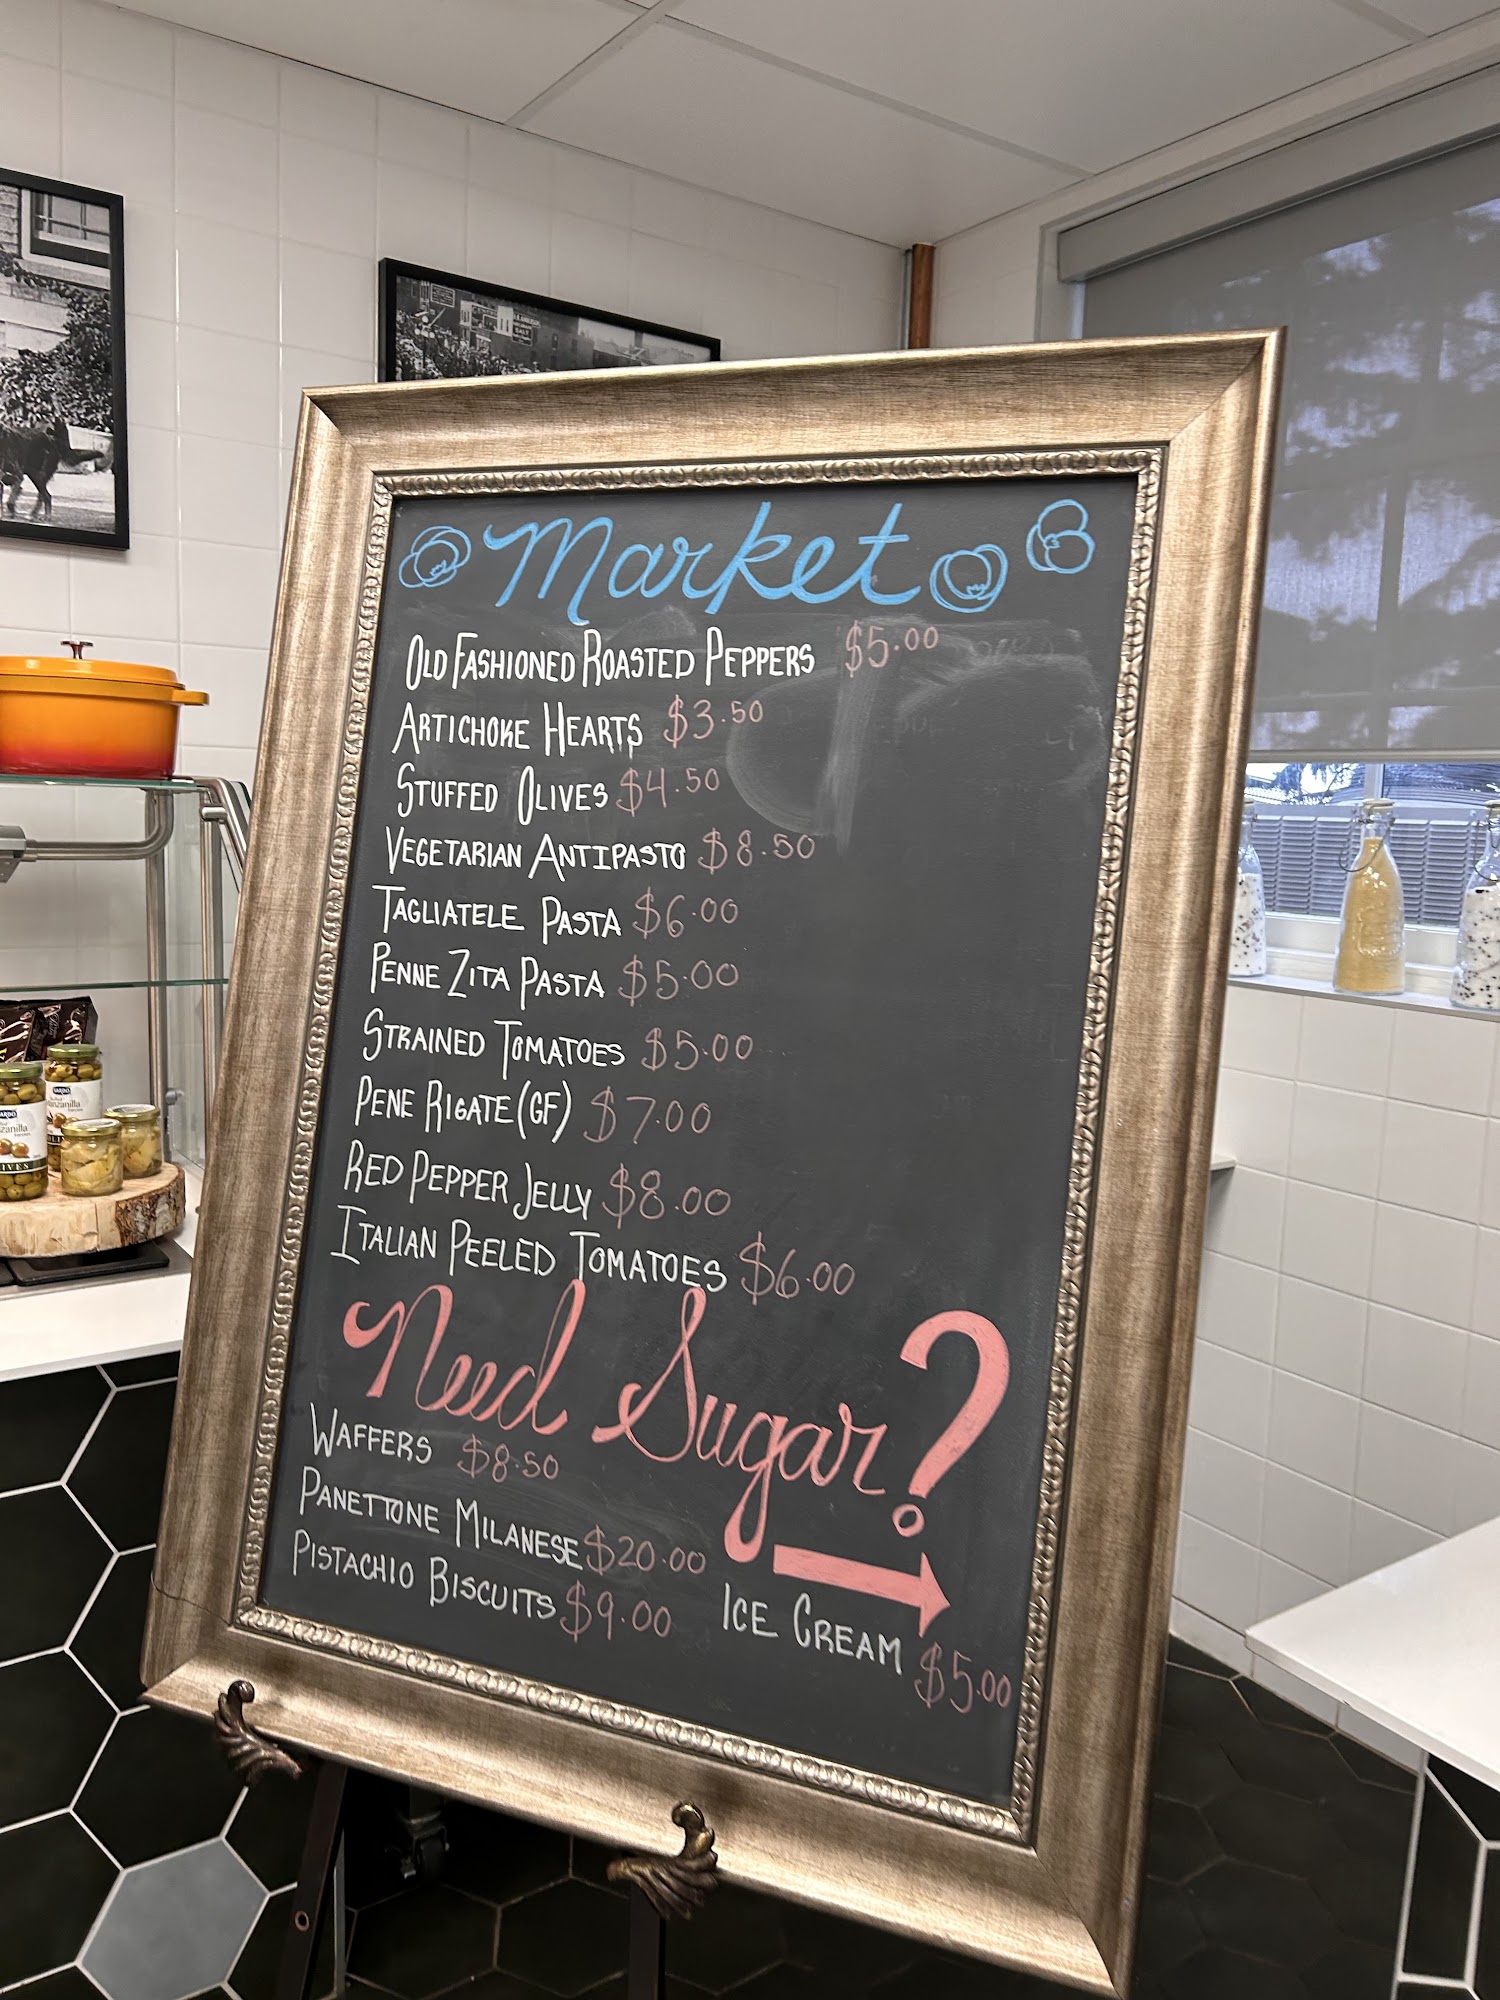 Market
OLD FASHIONED ROASTED PEPPERS $5.00
ARTICHOKE HEARTS $3.50
STUFFED OLIVES $4.50
VEGETARIAN ANTIPASTO $8.50
TAGLIATELE PASTA $6.00
PENNE ZITA PASTA $5.00
STRAINED TOMATOES $5.00
PENE RIGATE (GF) $7.00
RED PEPPER JELLY $8.00
ITALIAN PEELED TOMATOES $6.00
Need Sugar?
WAFFERS $8.50
PANETTONE MILANESE $20.00
PISTACHIO BISCUITS $9.00
ICE CREAM $5.00